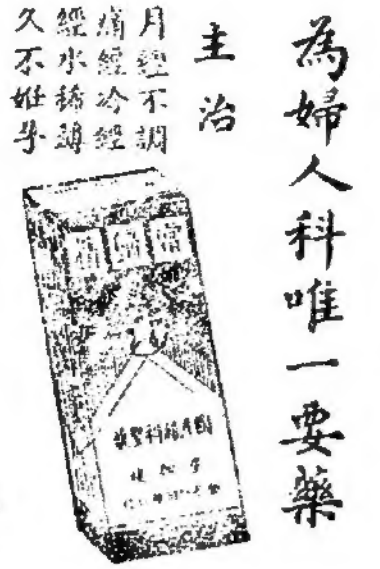 為婦人科唯一要藥
主治
月經不調
痛經冷經
經水稀薄
久不姙孕